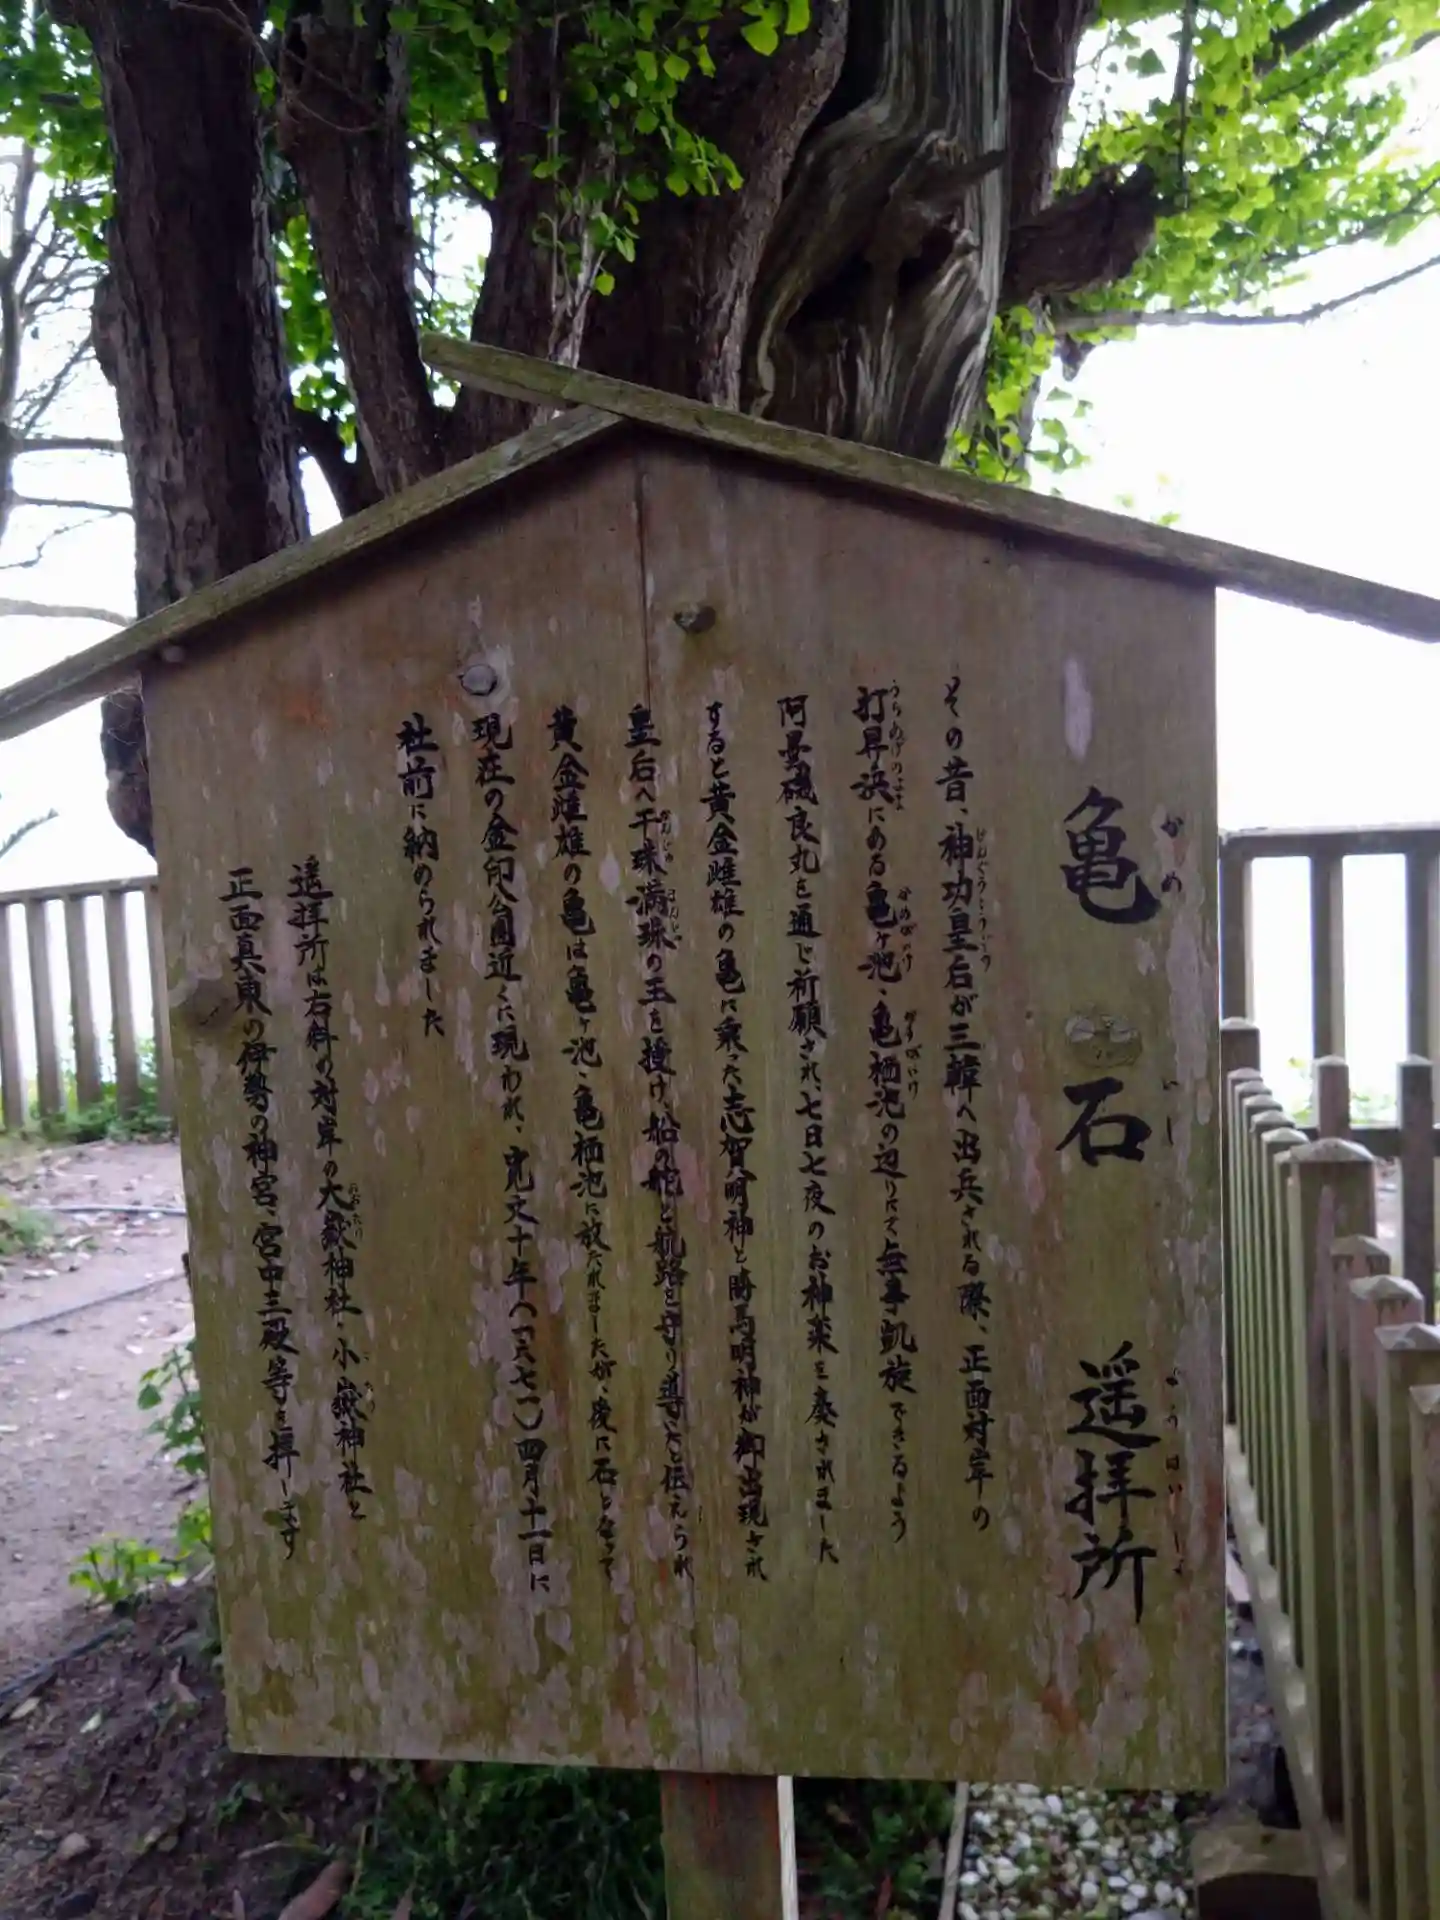 亀石遥拝所
かめいしようはいしょ
その昔、神功皇后が三韓へ出兵される際、正面対岸の
じんぐうこうごう
打昇浜にある亀ヶ池・亀栖池の辺りにて無事凱旋できるよう
うちあげのはま かめがいけ かめすいけ
阿曇磯良丸を通じ祈願され、七日七夜のお神楽を奏されました
すると黄金雌雄の亀に乗った志賀明神と勝馬明神が御出現され
皇后へ干珠満珠の玉を授け、船の舵と航路を守り導いたと伝えられ
かんじゅ まんじゅ
黄金雌雄の亀は亀ヶ池・亀栖池に放たれましたが、後に石となって
現在の金印公園近くに現われ、寛文十年(一六七〇)四月十一日に
社前に納められました
遥拝所は右斜の対岸の大嶽神社・小嶽神社と
おおたけ こたけ
正面真東の伊勢の神宮、宮中三殿等を拝します